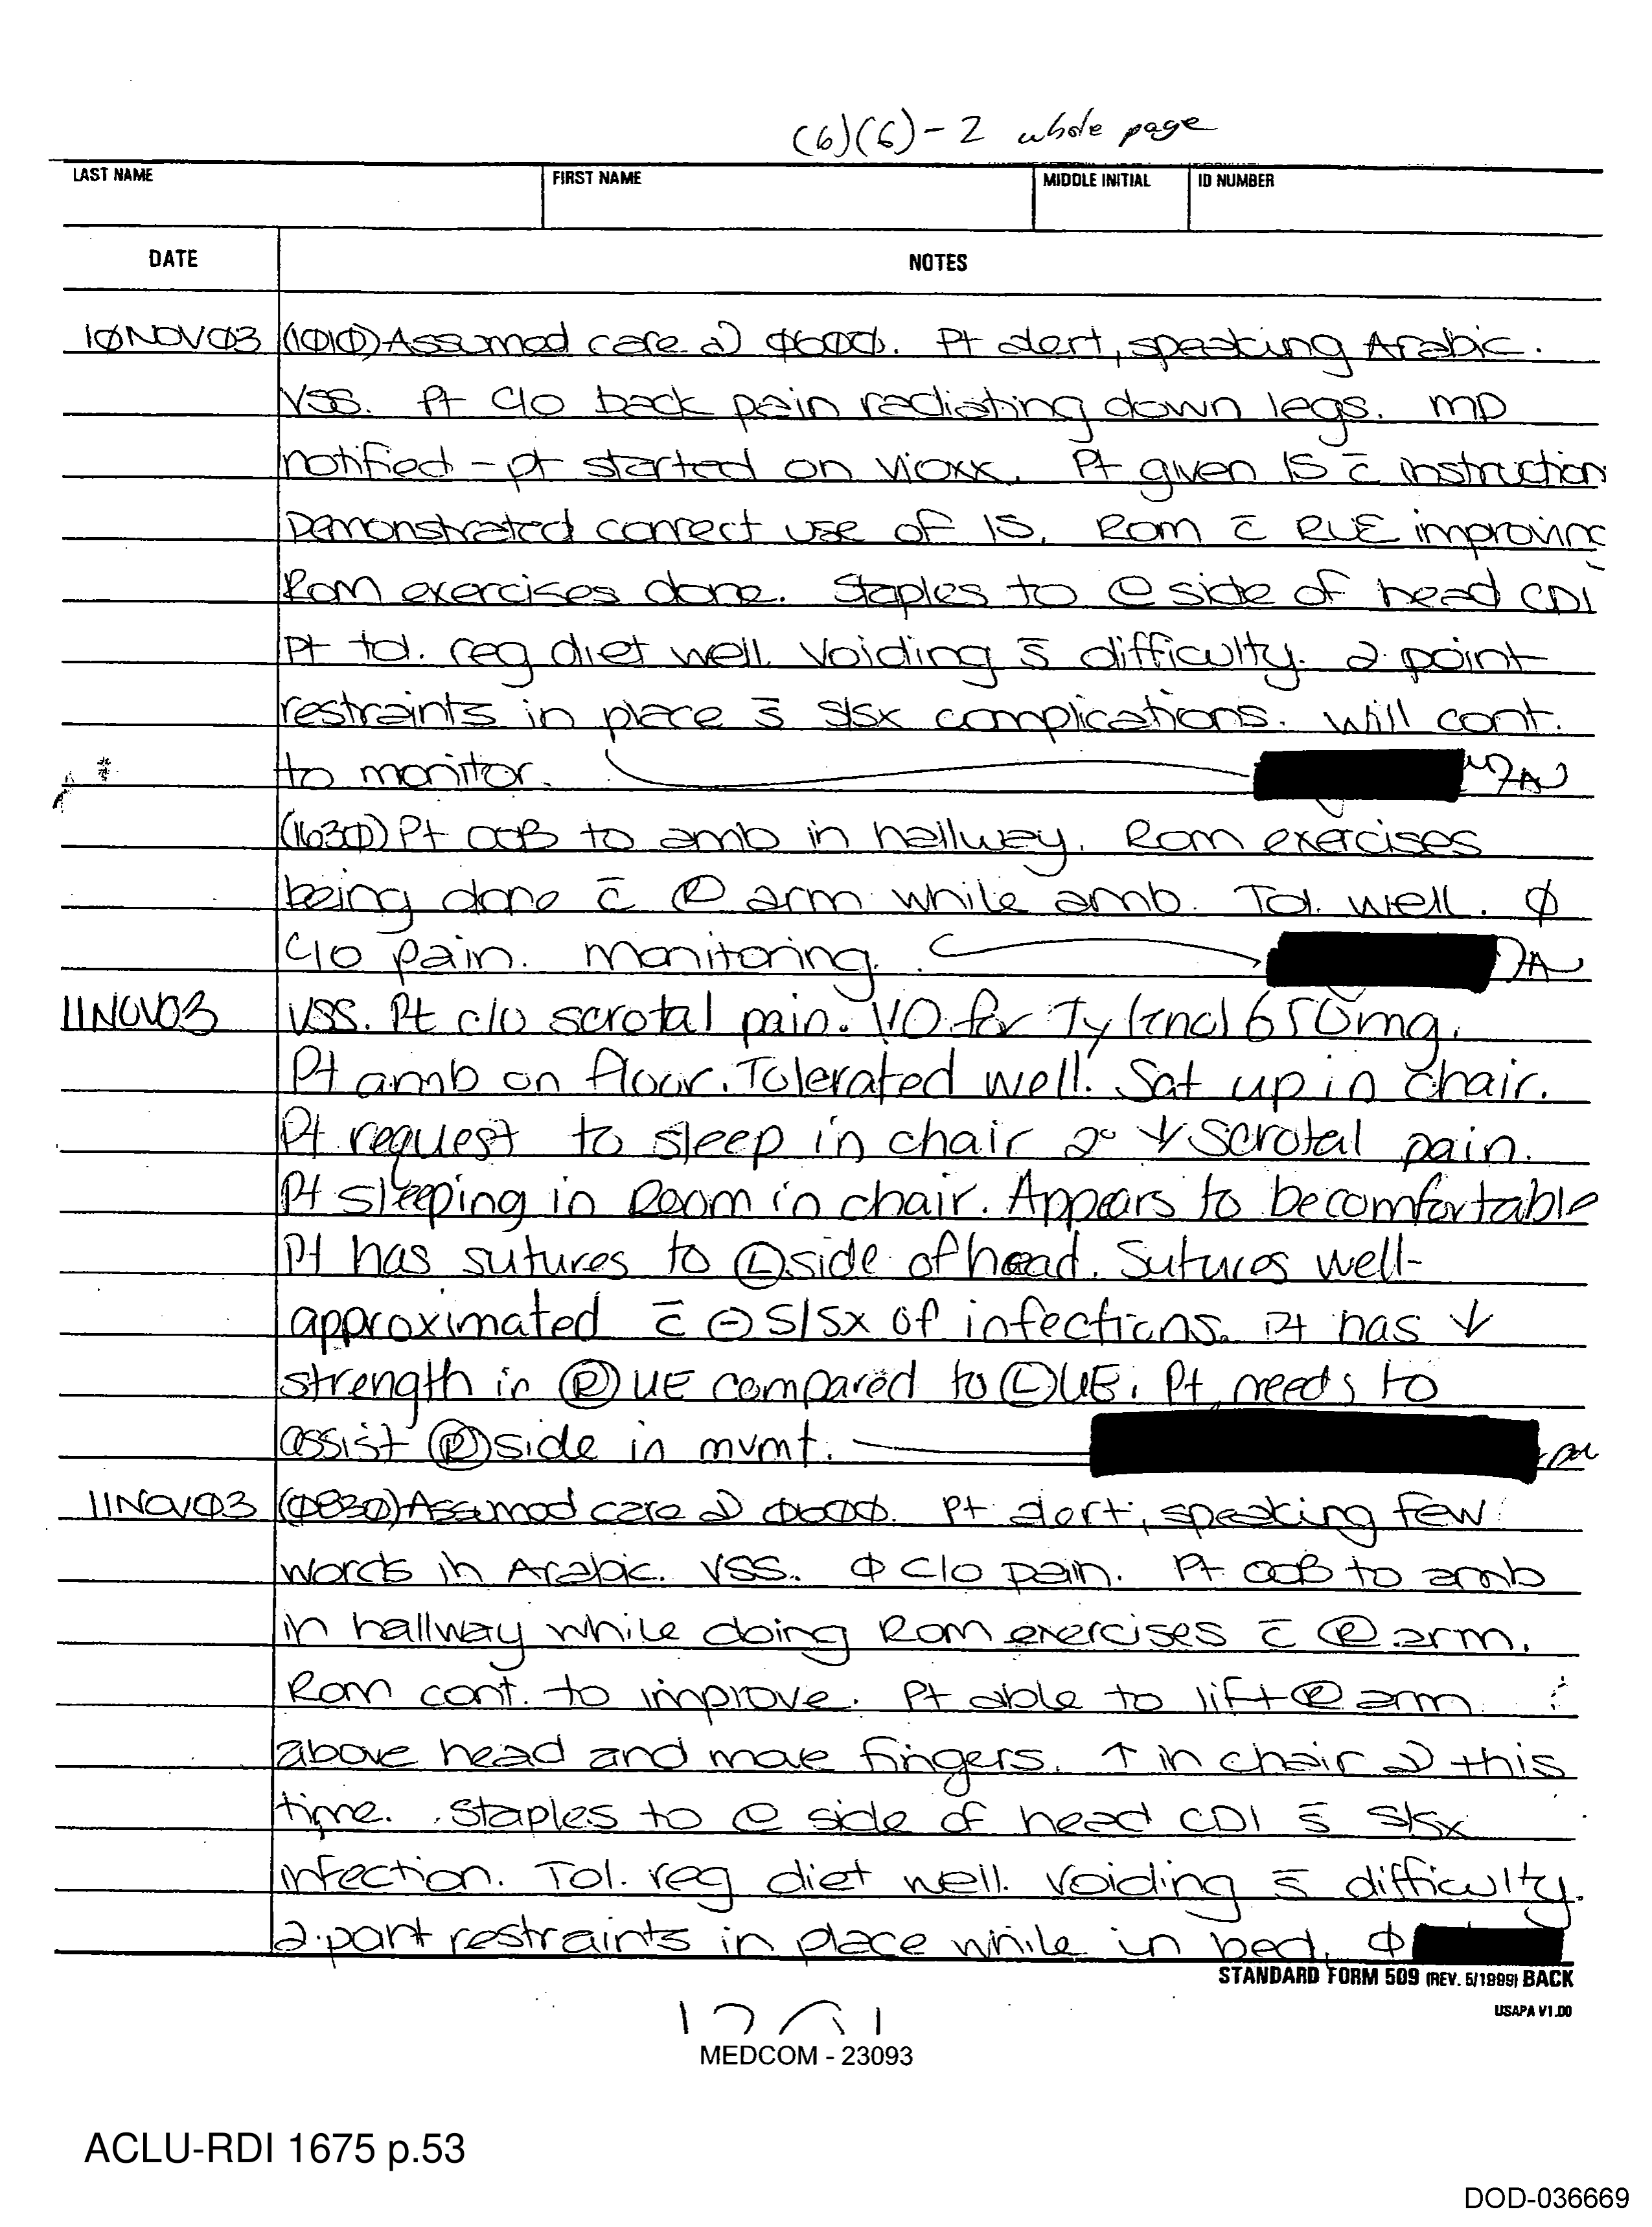 (6)(6)-2 whole page
LAST NAME FIRST NAME MIDDLE INITIAL ID NUMBER
DATE NOTES
10NOV03 (1010) Assumed care @ 0600. Pt alert, speaking Arabic.
VSS. Pt c/o back pain radiating down legs. MD
notified - pt started on Vioxx. Pt given IS c̄ instruction
Demonstrated correct use of IS. ROM c̄ RUE improving
ROM exercises done. Staples to Ⓛ side of head CDI
Pt tol. reg diet well. Voiding s̄ difficulty. 2 point
restraints in place s̄ s/sx complications. Will cont.
to monitor.
(1630) Pt OOB to amb in hallway. ROM exercises
being done c̄ Ⓡ arm while amb. Tol. well. Ø
c/o pain. Monitoring.
11NOV03 VSS. Pt c/o scrotal pain. VO for Tylenol 650mg.
Pt amb on floor. Tolerated well. Sat up in chair.
Pt request to sleep in chair 2° ↓ scrotal pain.
Pt sleeping in Room in chair. Appears to be comfortable
Pt has sutures to Ⓛ side of head. Sutures well-
approximated c̄ ⊖ S/Sx of infections. Pt has ↓
strength in Ⓡ UE compared to Ⓛ UE. Pt needs to
assist Ⓡ side in mvmt.
11NOV03 (0830) Assumed care @ 0600. Pt alert, speaking few
words in Arabic. VSS. Ø c/o pain. Pt OOB to amb
in hallway while doing ROM exercises c̄ Ⓡ arm.
ROM cont. to improve. Pt able to lift Ⓡ arm
above head and move fingers. ↑ in chair @ this
time. Staples to Ⓛ side of head CDI s̄ s/sx
infection. Tol. reg diet well. Voiding s̄ difficulty.
2-point restraints in place while in bed. Ø
STANDARD FORM 509 (REV. 5/1999) BACK
USAPA V1.00
MEDCOM - 23093
ACLU-RDI 1675 p.53
DOD-036669